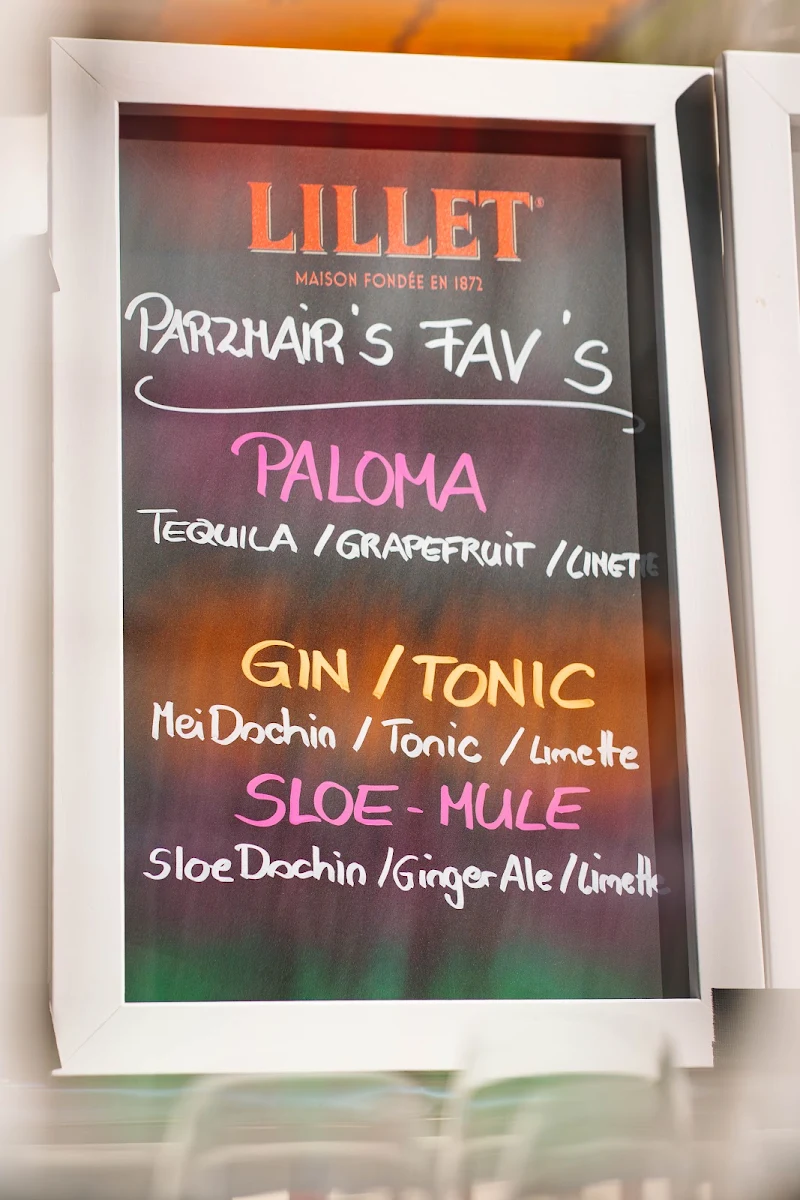 LILLET®
MAISON FONDÉE EN 1872
PARZMAIR'S FAV'S
PALOMA
TEQUILA / GRAPEFRUIT / LIMETTE
GIN / TONIC
Mei Dochin / Tonic / Limette
SLOE-MULE
Sloe Dochin / Ginger Ale / Limette